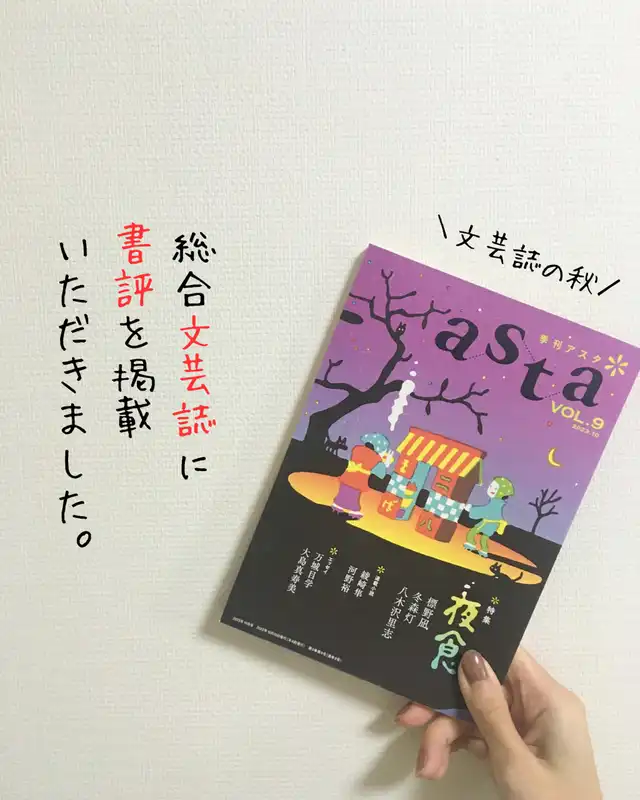 総合文芸誌に
書評を掲載
いただきました。
\文芸誌の秋/
asta
季刊アスタ
VOL.9
2023.10
二八
そば
特集
夜食
標野凪
冬森灯
八木沢里志
連載小説
綾崎隼
河野裕
エッセイ
万城目学
大島真寿美